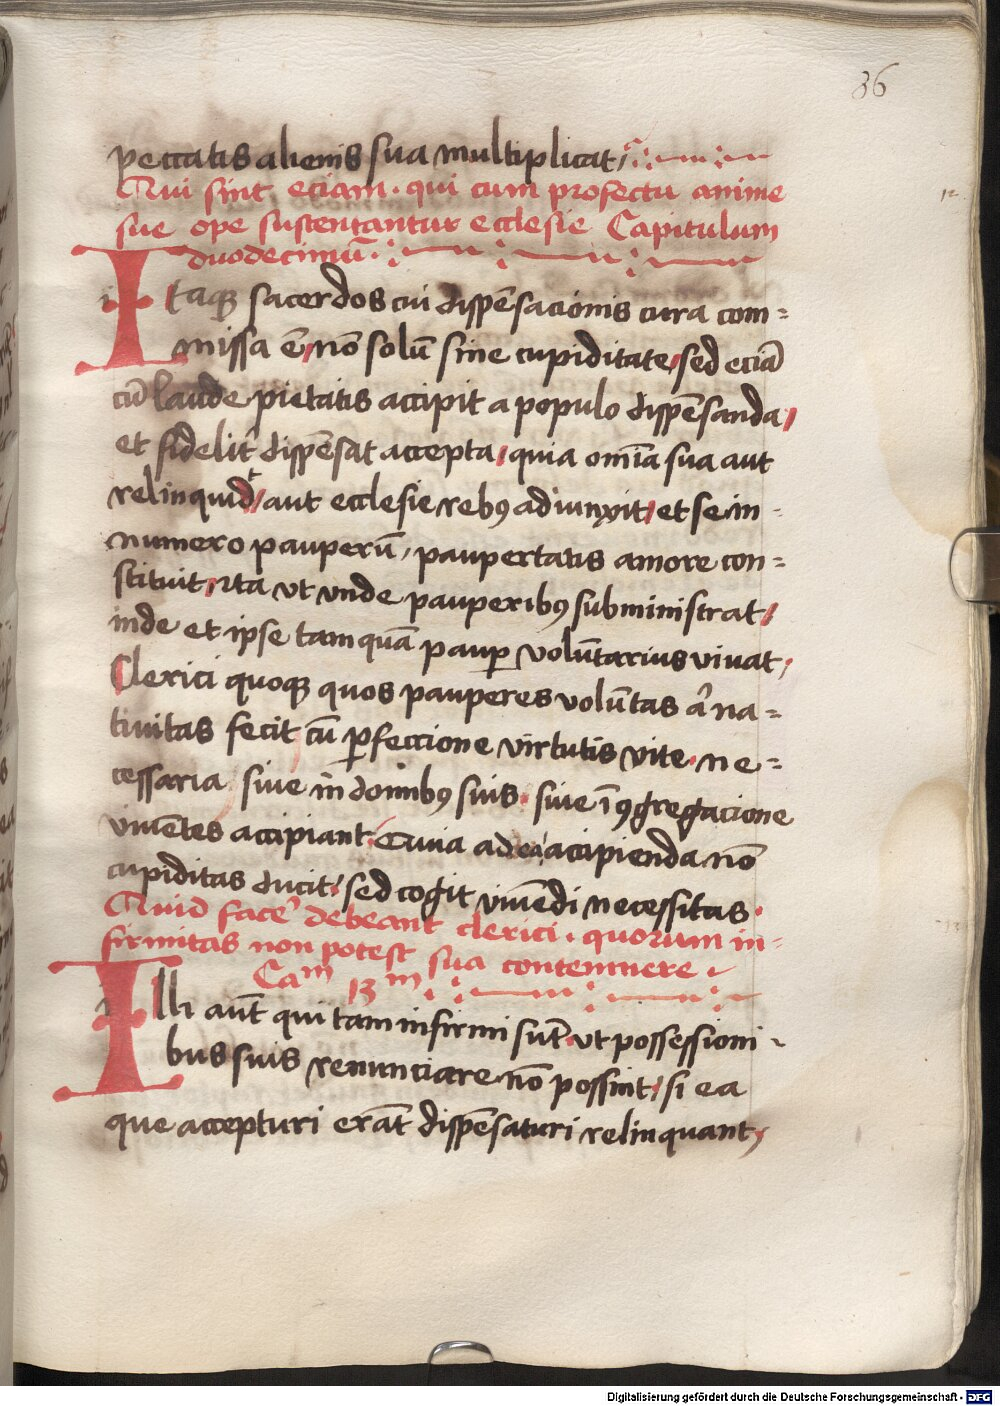 36
peccatis alienis sua multiplicat
12
Qui sint eciam · qui cum profectu anime
sue ope sustentantur ecclesie Capitulum
duodecimū
Itaqꝫ sacerdos cui dispēsacionis cura com=
missa ē, nō solū sine cupiditate, sed eciā
cū laude pietatis accipit a populo dispēsanda,
et fidelit̄ dispēsat accepta, quia om̄ia sua aut
relinquid, aut ecclesie rebꝯ adiunxit, et se in-
numero pauperū, paupertatis amore con=
stituit, ita ut unde pauperibꝯ subministrat,
inde et ipse tamquā paup̄ volūtarius vivat,
Clerici quoqꝫ quos pauperes volūtas a̓ na=
tivitas fecit cū ꝑfeccione virtutis vite · ne=
cessaria sive in domibꝯ suis · sive ī ꝯgregacione
viuētes accipiant, Quia ad ea accipienda nō
cupiditas ducit, sed cogit viuēdi necessitas ·
Quid facē debeant clerici · quorum in-
firmitas non potest sua contemnere
Cam 13m
Illi aūt qui tam infirmi sūt, ut possessioni-
bus suis renunciare nō possint, si ea
que accepturi erāt dispēsaturi relinquant,
Digitalisierung gefördert durch die Deutsche Forschungsgemeinschaft - DFG